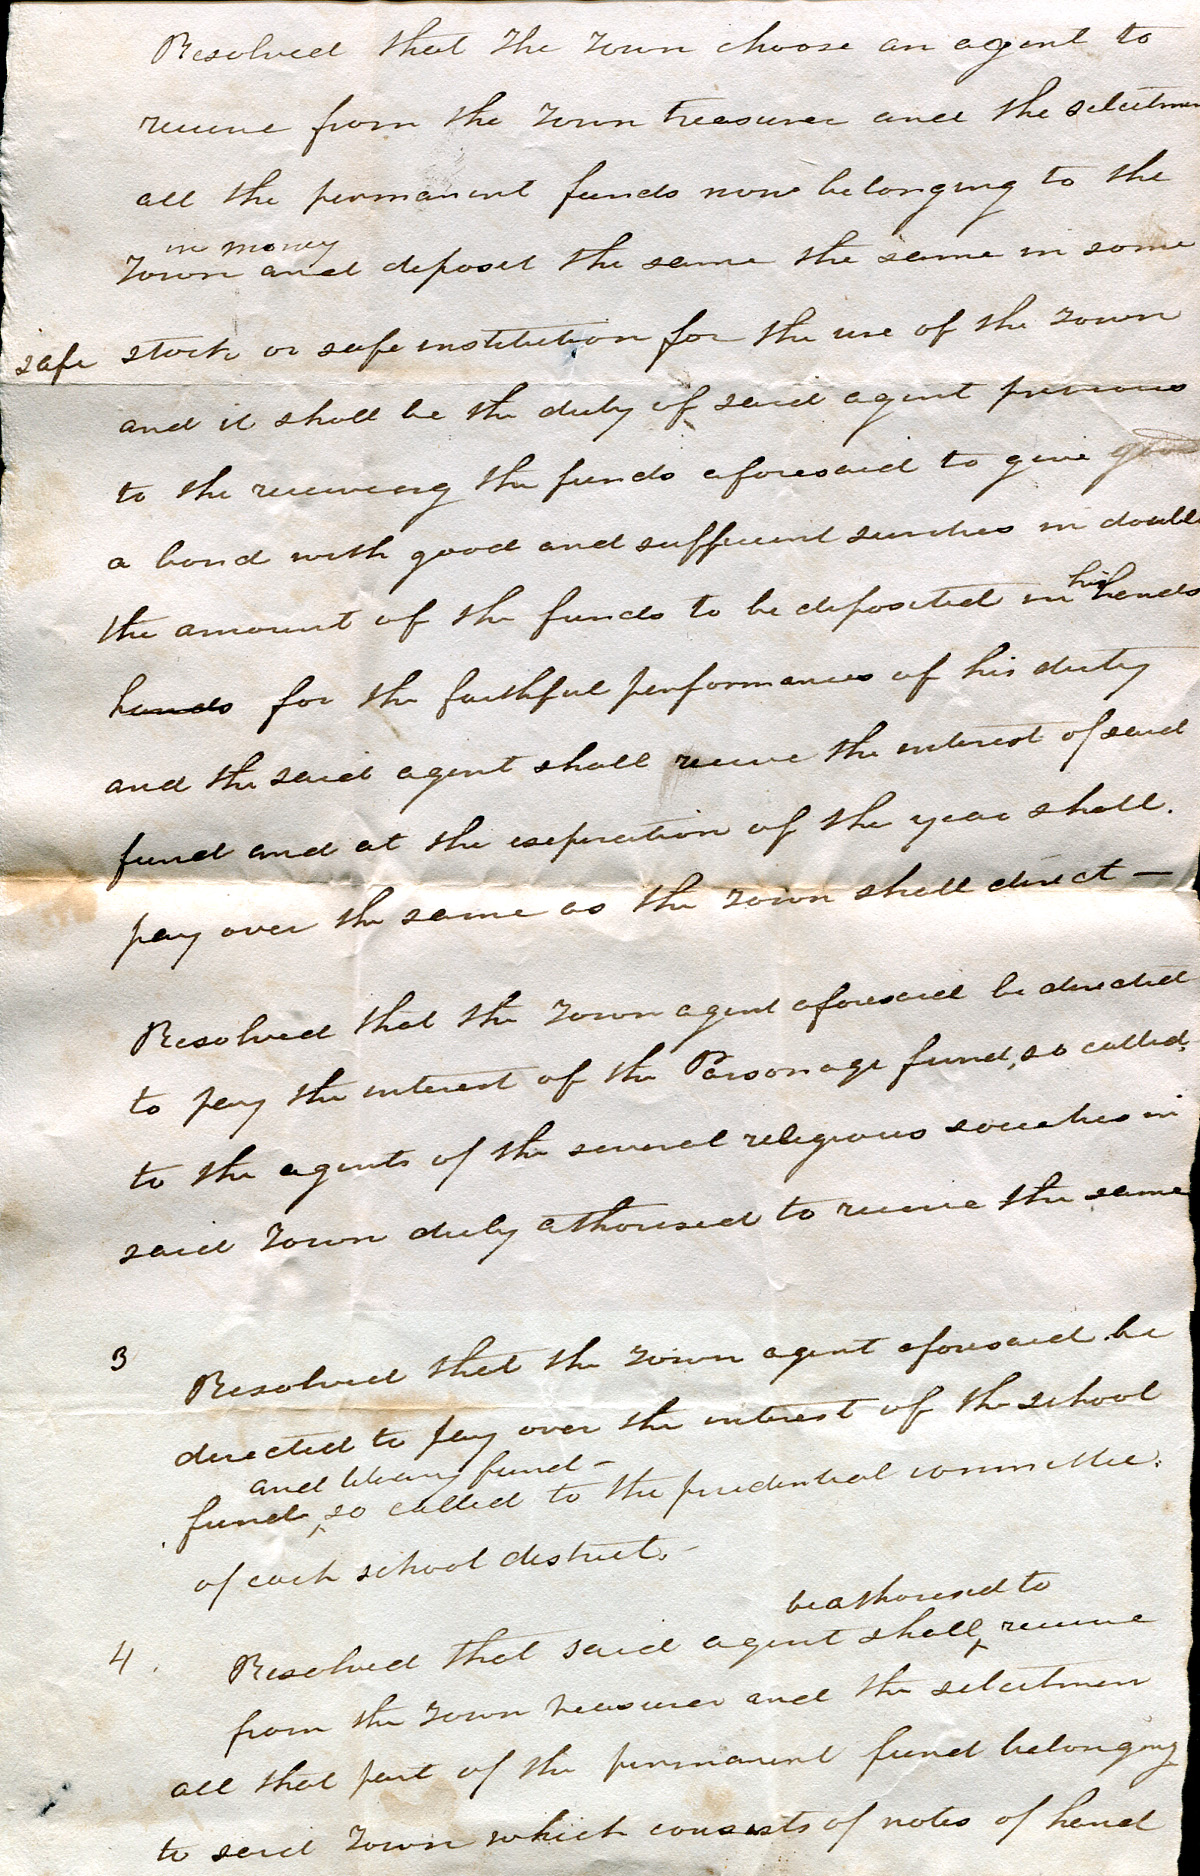 Resolved that The Town choose an agent to
receive from the Town treasurer and the selectmen
all the permanent funds now belonging to the
in money
Town and deposit the same the same in some
safe stock or safe institution for the use of the Town
and it shall be the duty of said agent previous
to the receiving the funds aforesaid to give good
a bond with good and sufficient sureties in double
the amount of the funds to be deposited in his hands
hands for the faithful performances of his duty
and the said agent shall receive the interest of said
fund and at the expiration of the year shall.
pay over the same as the Town shall direct —
Resolved that the Town agent aforesaid be directed
to pay the interest of the Parsonage fund, so called,
to the agents of the several religious societies in
said Town duly athorised to receive the same
3 Resolved that the Town agent aforesaid be
directed to pay over the interest of the school
and library fund –
fund, so called to the prudential committee.
of each school district. –
be athorised to
4. Resolved that said agent shall receive
from the Town treasurer and the selectmen
all that part of the permanent fund belonging
to said Town which consists of notes of hand